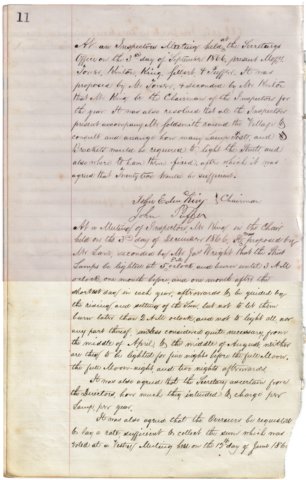 11
At an Inspectors Meeting held at the Secretarys
Office on the 3rd day of September 1866, present Messrs
Towse, Winton, King, & Piffer. It was
proposed by Mr Towse, & seconded by Mr Winton
that Mr King be the Chairman of the Inspectors for
the year. It was also resolved that all the Inspectors
present accompany Mr round the Village to
consult and arrange how many Lamp Posts, and
Brackets would be required to light the Streets and
also where to have them fixed, after which it was
agreed that Twenty two would be sufficient.
John Eden King Chairman
John Piffer
At a Meeting of Inspectors Mr King in the Chair
held on the 3rd day of December 1866, It was proposed by
Mr Lane, seconded by Mr Jas Wright that the Street
Lamps be lighted at 5 oclock and burn until 2 A.M.
oclock one month before, and one month after the
shortest day in each year, afterwards to be guided by
the rising and setting of the Sun, but not to let them
burn later than 2 A.M. oclock, and not to light all, nor
any part thereof, unless considered quite necessary, from
the middle of April, to the middle of August, neither
are they to be lighted for five nights before the full Moon,
the full Moon night and two nights afterwards.
It was also agreed that the Secretary ascertain from
the Directors how much they intended to charge per
Lamp per year.
It was also agreed that the Overseers be requested
to lay a rate sufficient to collect the sum which was
voted at a Vestry Meeting held on the 13th day of June 1866